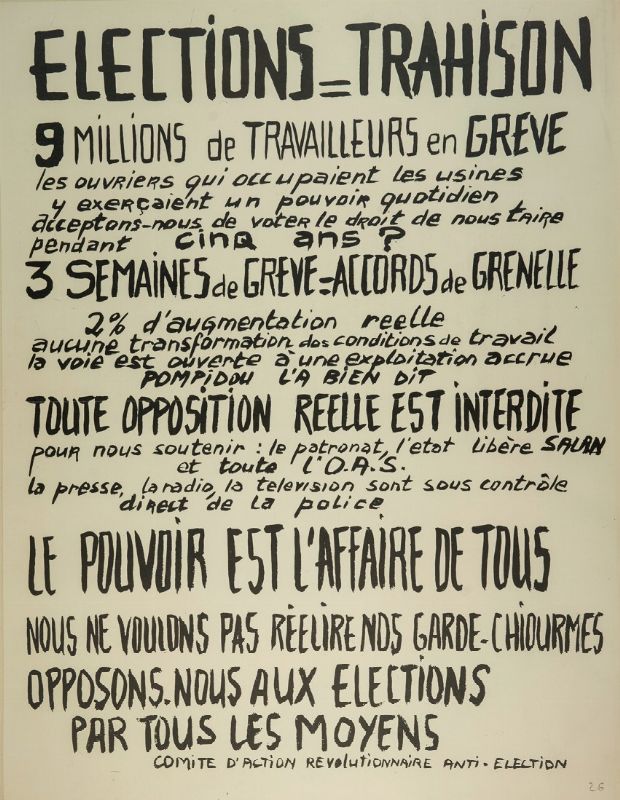 ELECTIONS=TRAHISON
9 MILLIONS de TRAVAILLEURS en GREVE
les ouvriers qui occupaient les usines
y exerçaient un pouvoir quotidien,
acceptons-nous de voter le droit de nous taire
pendant cinq ans ?
3 SEMAINES de GREVE=ACCORDS de GRENELLE
2% d'augmentation reelle
aucune transformation des conditions de travail
la voie est ouverte à une exploitation accrue
POMPIDOU L'A BIEN DIT
TOUTE OPPOSITION REELLE EST INTERDITE
pour nous soutenir : le patronat, l'etat libère SALAN
et toute l'O.A.S.
la presse, la radio, la television sont sous contrôle
direct de la police
LE POUVOIR EST L'AFFAIRE DE TOUS
NOUS NE VOULONS PAS RÈELIRE NOS GARDE-CHIOURMES
OPPOSONS-NOUS AUX ELECTIONS
PAR TOUS LES MOYENS
COMITE D'ACTION REVOLUTIONNAIRE ANTI-ELECTION
26